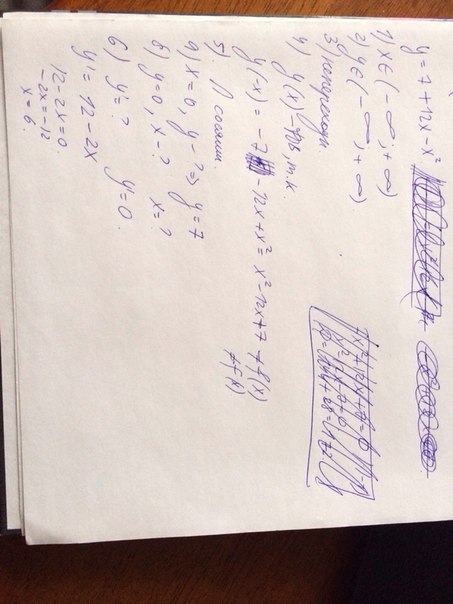 y = 7 + 12x - x²
1) x ∈ (-∞; +∞)
2) y ∈ (-∞; +∞)
3) непереход.
4) y(x) - , т.к.
y(-x) = -7 - 12x + x² = x² - 12x + 7 ≠ f(x)
≠ f(x)
5) Π с осями
а) x = 0, y - ? ⇒ y = 7
б) y = 0, x - ? x = ?
6) y' = ? y' = 0.
y' = 12 - 2x
12 - 2x = 0.
-2x = -12
x = 6.